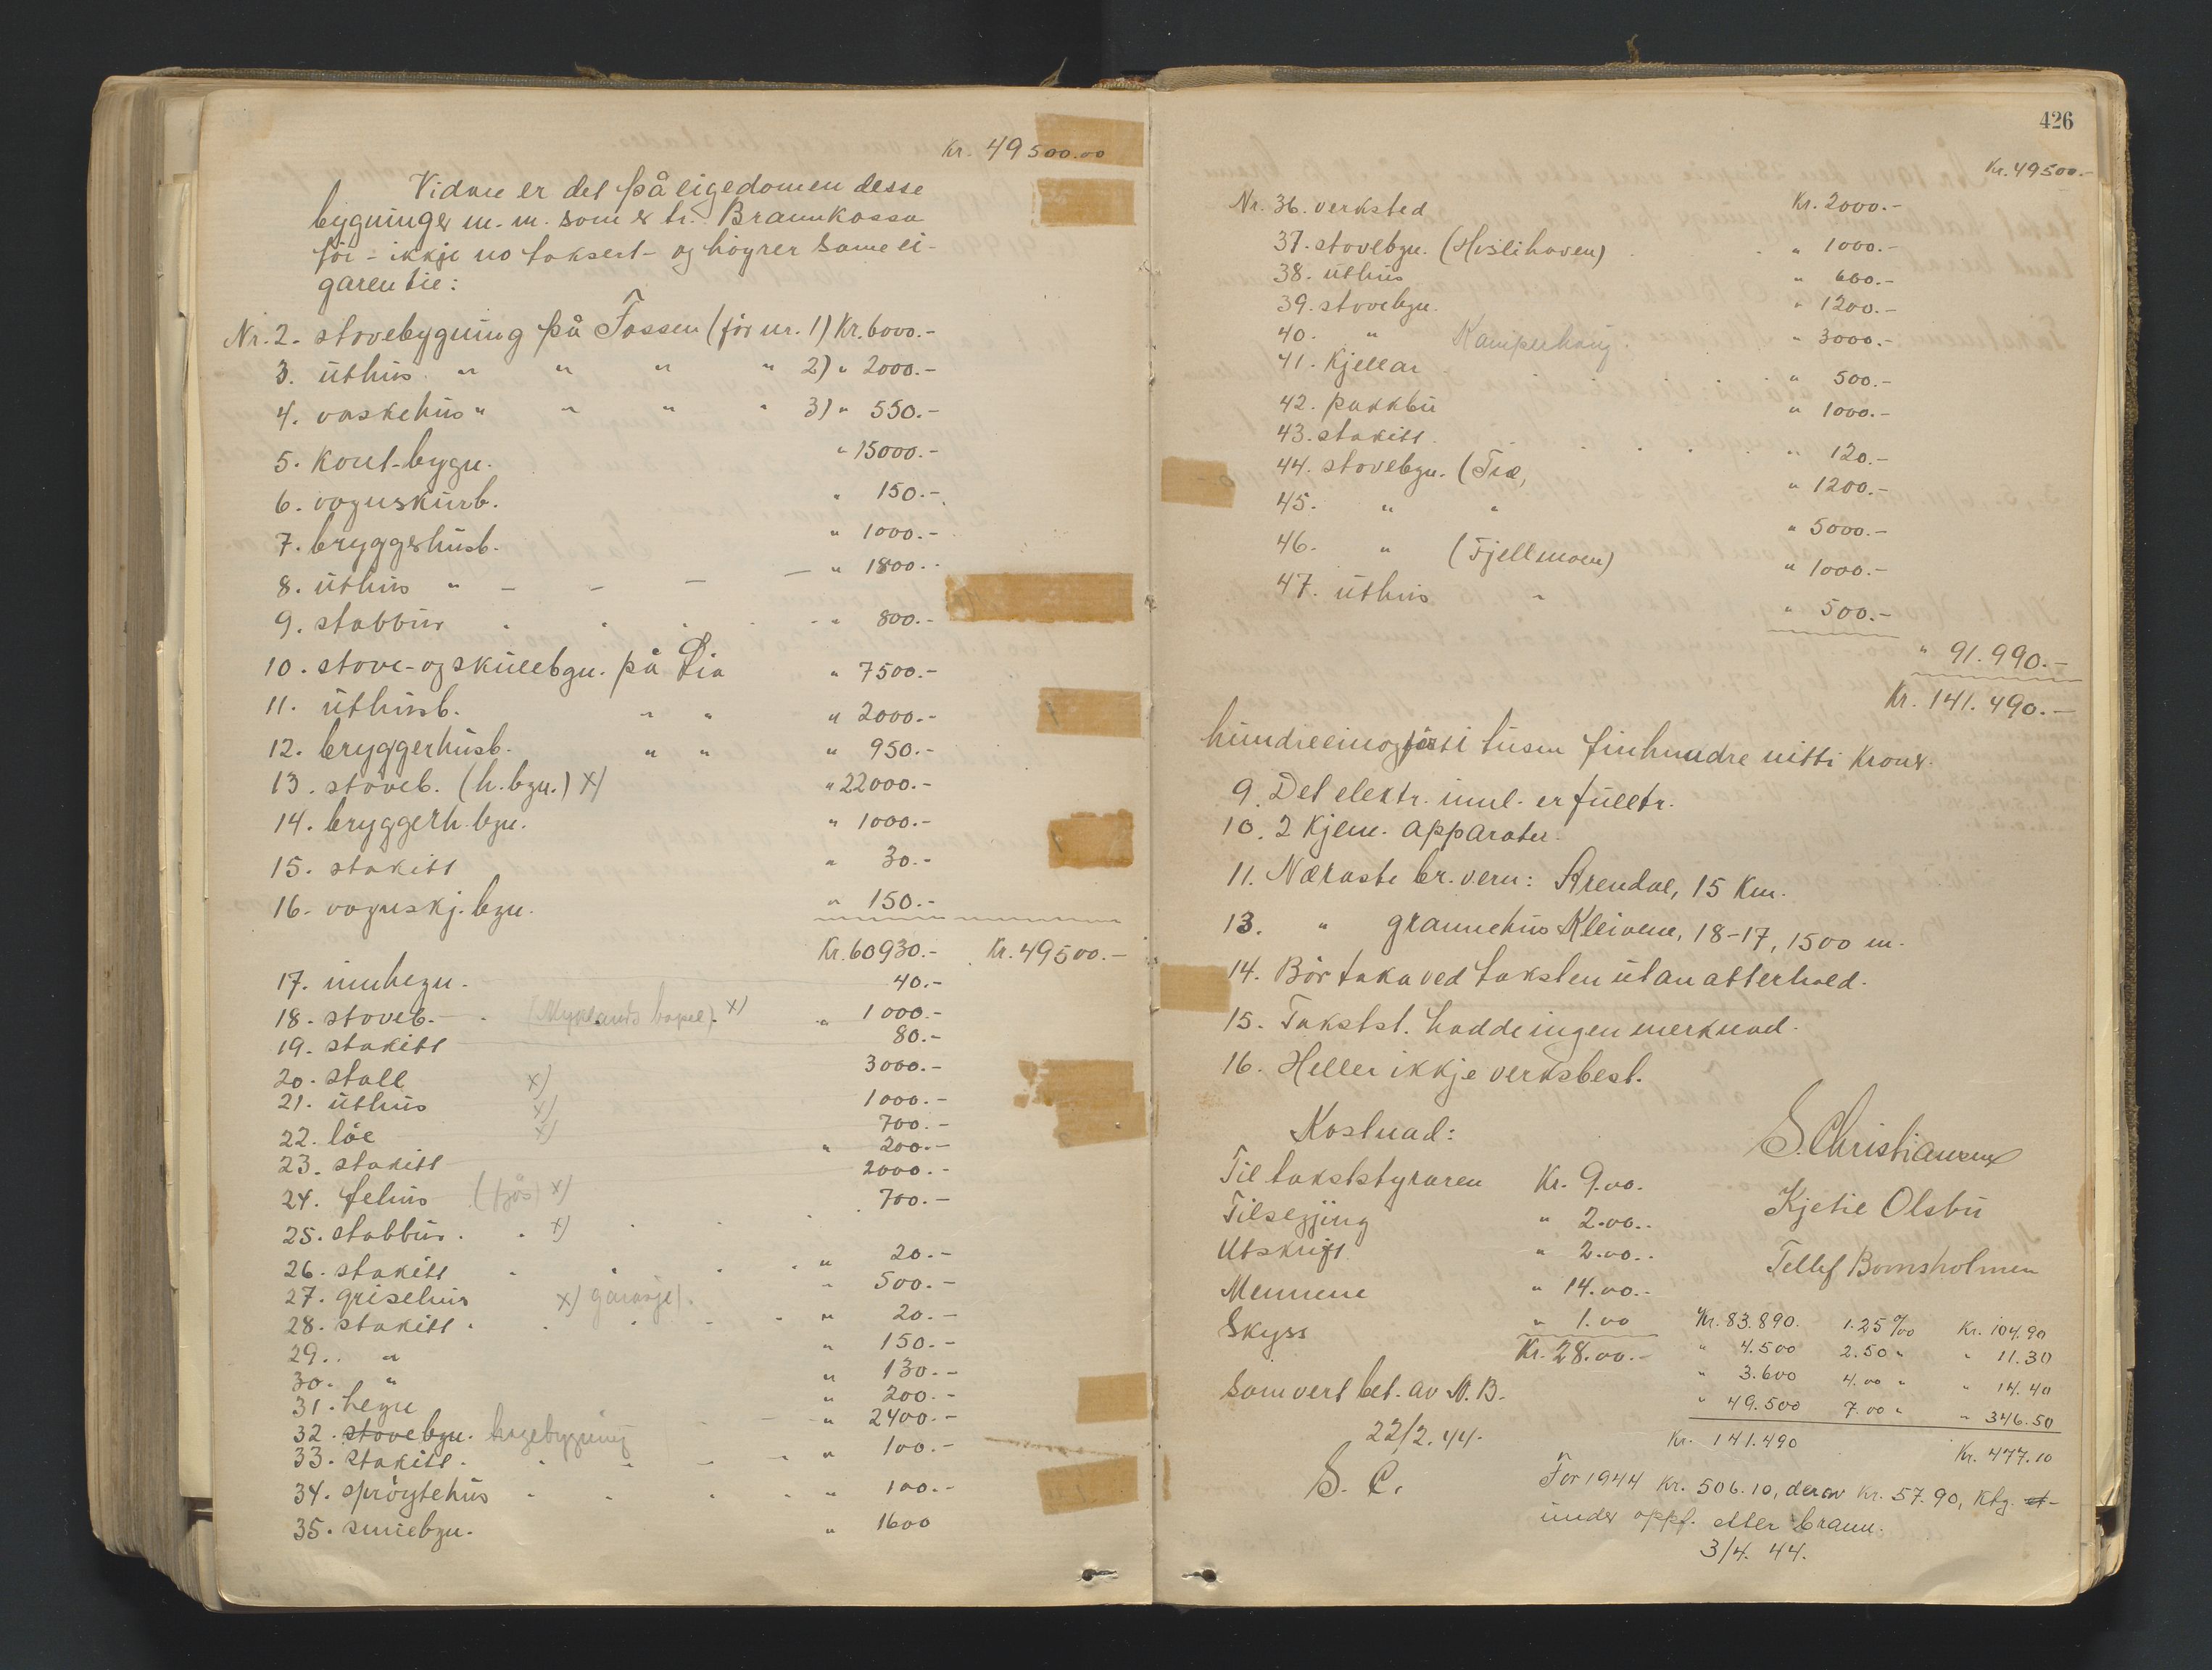 Kr. 49500.00
Vidare er det på eigedomen desse
bygninger m.m. som er tr. i Brannkassa
før - ikkje no taksert - og höyrer same ei-
garen tie:
Nr. 2. stovebygning på Fossen (för nr. 1) Kr. 6000.-
3. úthús " " " " 2) " 2000.-
4. vaskehús " " " " 3) " 550.-
5. Kont-bygn. " 15000.-
6. vognskúrb. " 150.-
7. bryggerhúsb. " 1000.-
8. úthús " - - - - " 1800.-
9. stabbúr " 800.-
10. stove- og skúlebgn. på Lia " 7500.-
11. úthúsb. " " " 2000.-
12. bryggerhúsb. " " " 950.-
13. stoveb. (h.bgn.) x) " 22000.-
14. bryggerh.bgn. " 1000.-
15. stakitt " 30.-
16. vognskj.bgn. " 150.-
Kr. 60930.- Kr. 49500.-
17. innhegn. 40.-
18. stoveb. (Myklands kapel) x) " 1000.-
19. stakitt 80.-
20. stall x) 3000.-
21. úthús x) 1000.-
22. löe x) 700.-
23. stakitt " 200.-
24. fehús (fjös) x) 2000.-
25. stabbúr x) 700.-
26. stakitt " 20.-
27. grisehús x) garasje) " 500.-
28. stakitt " 20.-
29. " " 150.-
30. " " 130.-
31. hegn " 200.-
32. stovebgn. hagebygning " 2400.-
33. stakitt " 100.-
34. spröytehús " 100.-
35. smiebgn. " 1600
426
Kr. 49500.-
Nr. 36. verksted Kr. 2000.-
37. stovebgn. (Hislihaven) " 1000.-
38. úthús " 600.-
39. stovebgn. " 1200.-
40. " Kamperhaug " 3000.-
41. Kjellar " 500.-
42. pakkbú " 1000.-
43. stakitt " 120.-
44. stovebgn. (Træ, " 1200.-
45. " " " 5000.-
46. " (Fjellmoen) " 1000.-
47. úthús " " 500.-
" 91.990.-
Kr. 141.490.-
hundreeinogförti túsen firehundre nitti Kroner.
9. Det elektr. innl. er fulltr.
10. 2 Kjem. apparater.
11. Næraste br.vern: Arendal, 15 Km.
13. " grannehús Kleivene, 18-17, 1500 m.
14. Bör taka ved taksten útan atterhald.
15. Takstst. hadde ingen merknad.
16. Heller ikkje verksbest.
Kostnad:
Til takststyraren Kr. 9.00.
Tilsegjing " 2.00.
Utskrift " 2.00.
Mennene " 14.00.-
Skyss " 1.00
Kr. 28.00.-
som vert bet. av N.B.
22/2.44.
S. C.
S. Christiansen
Kjetil Olsbú
Tellef Bomsholmen
Kr. 83.890. 1.25 ‰ Kr. 104.90
" 4.500 2.50 " " 11.30
" 3.600 4.00 " " 14.40
" 49.500 7.00 " " 346.50
Kr. 141.490 Kr. 477.10
For 1944 Kr. 506.10, derav Kr. 57.90, Ktg. et-
under oppf. etter brann.
3/4. 44.